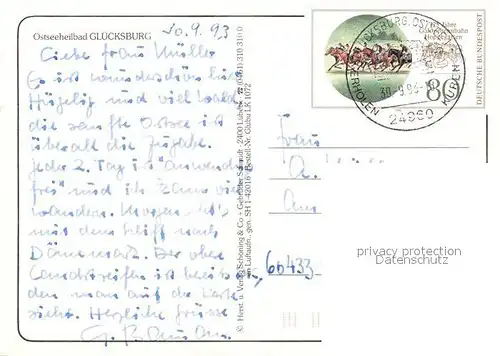 30.9.93
Ostseeheilbad GLÜCKSBURG
Liebe Frau Müller
Es ist wunderschön hier
Hügelig und viel Wald
die sanfte Ostsee ist
überall die Zugabe.
jeder 2. Tag ist "anwendungs
frei" und ich kann viel
wandern. Morgen geht's
mit dem Schiff nach
Dänemark. Der obere
Landstreifen ist bereits
den man auf der Karte
sieht. Herzliche Grüsse
© Horst u. Verlag Schöning & Co + Gebrüder Schmidt · 2400 Lübeck
Bestell-Nr. Glübu LK 1072
80
DEUTSCHE BUNDESPOST
GLÜCKSBURG, OSTSEE
30.-9.93
24960
ERHOLEN
KUREN
Frau
66433
privacy protection
Datenschutz